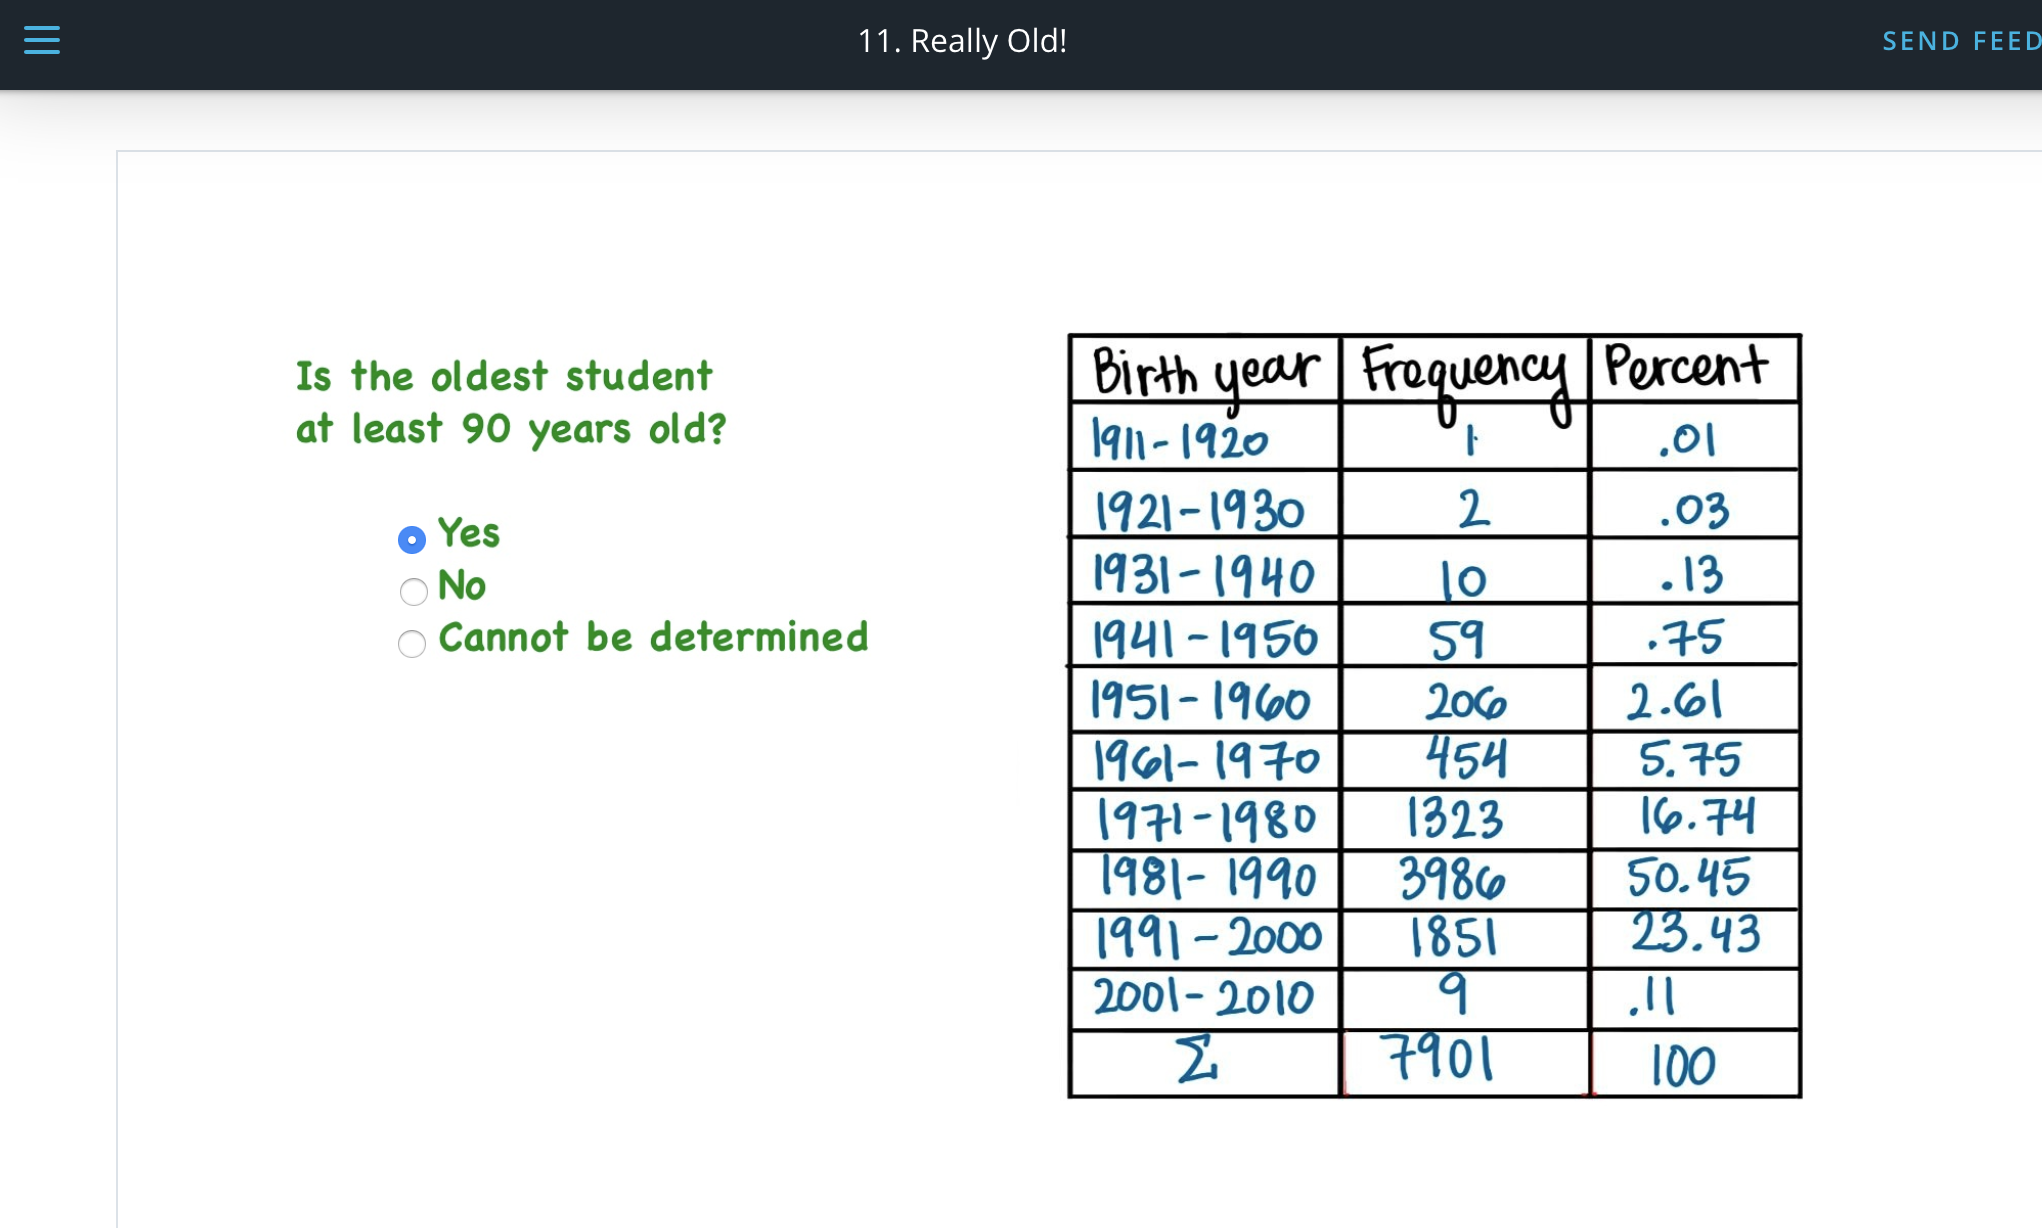 11. Really Old!
SEND FEED
Is the oldest student
at least 90 years old?
Yes
No
Cannot be determined
Birth year Frequency Percent
1911-1920 1 .01
1921-1930 2 .03
1931-1940 10 .13
1941-1950 59 .75
1951-1960 206 2.61
1961-1970 454 5.75
1971-1980 1323 16.74
1981-1990 3986 50.45
1991-2000 1851 23.43
2001-2010 9 .11
Σ 7901 100